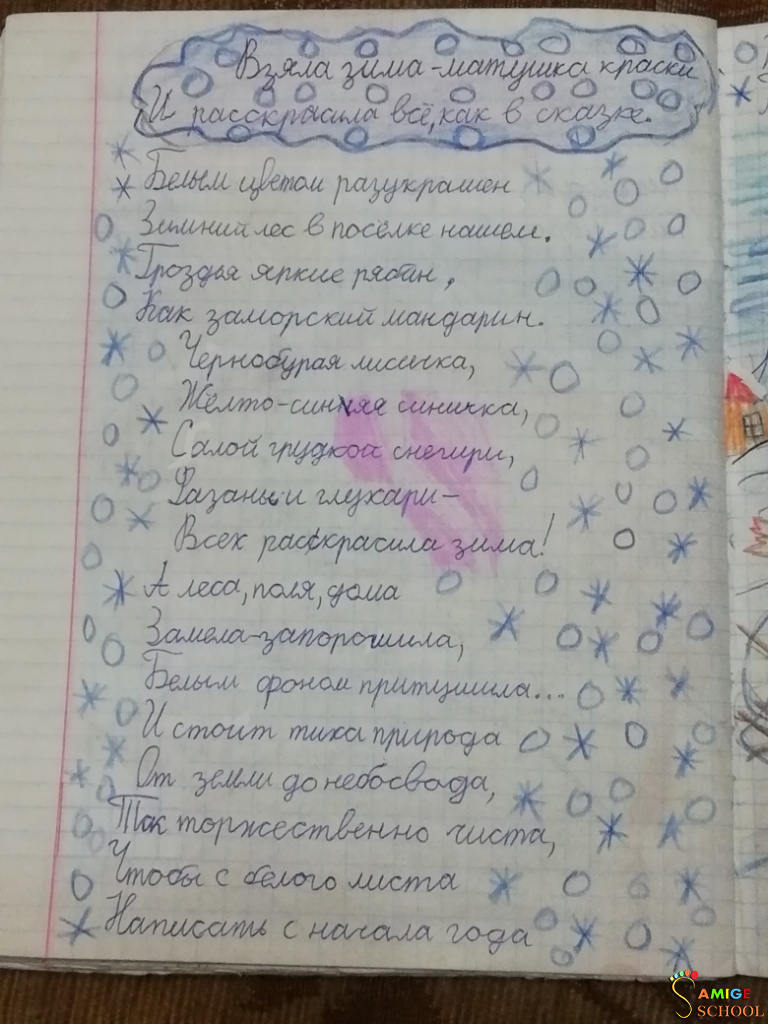 Взяла зима-матушка краски
И расскрасила всё, как в сказке.
Белым цветом разукрашен
Зимний лес в посёлке нашем.
Гроздья яркие рябин,
Как заморский мандарин.
Чернобурая лисичка,
Жёлто-синяя синичка,
С алой грудкой снегири,
Фазаны и глухари-
Всех раскрасила зима!
А леса, поля, дома
Замела-запорошила,
Белым фоном притушила...
И стоит тиха природа
От земли до небосвода,
Так торжественно чиста,
Чтобы с белого листа
Написать с начала года
SAMIGE
SCHOOL